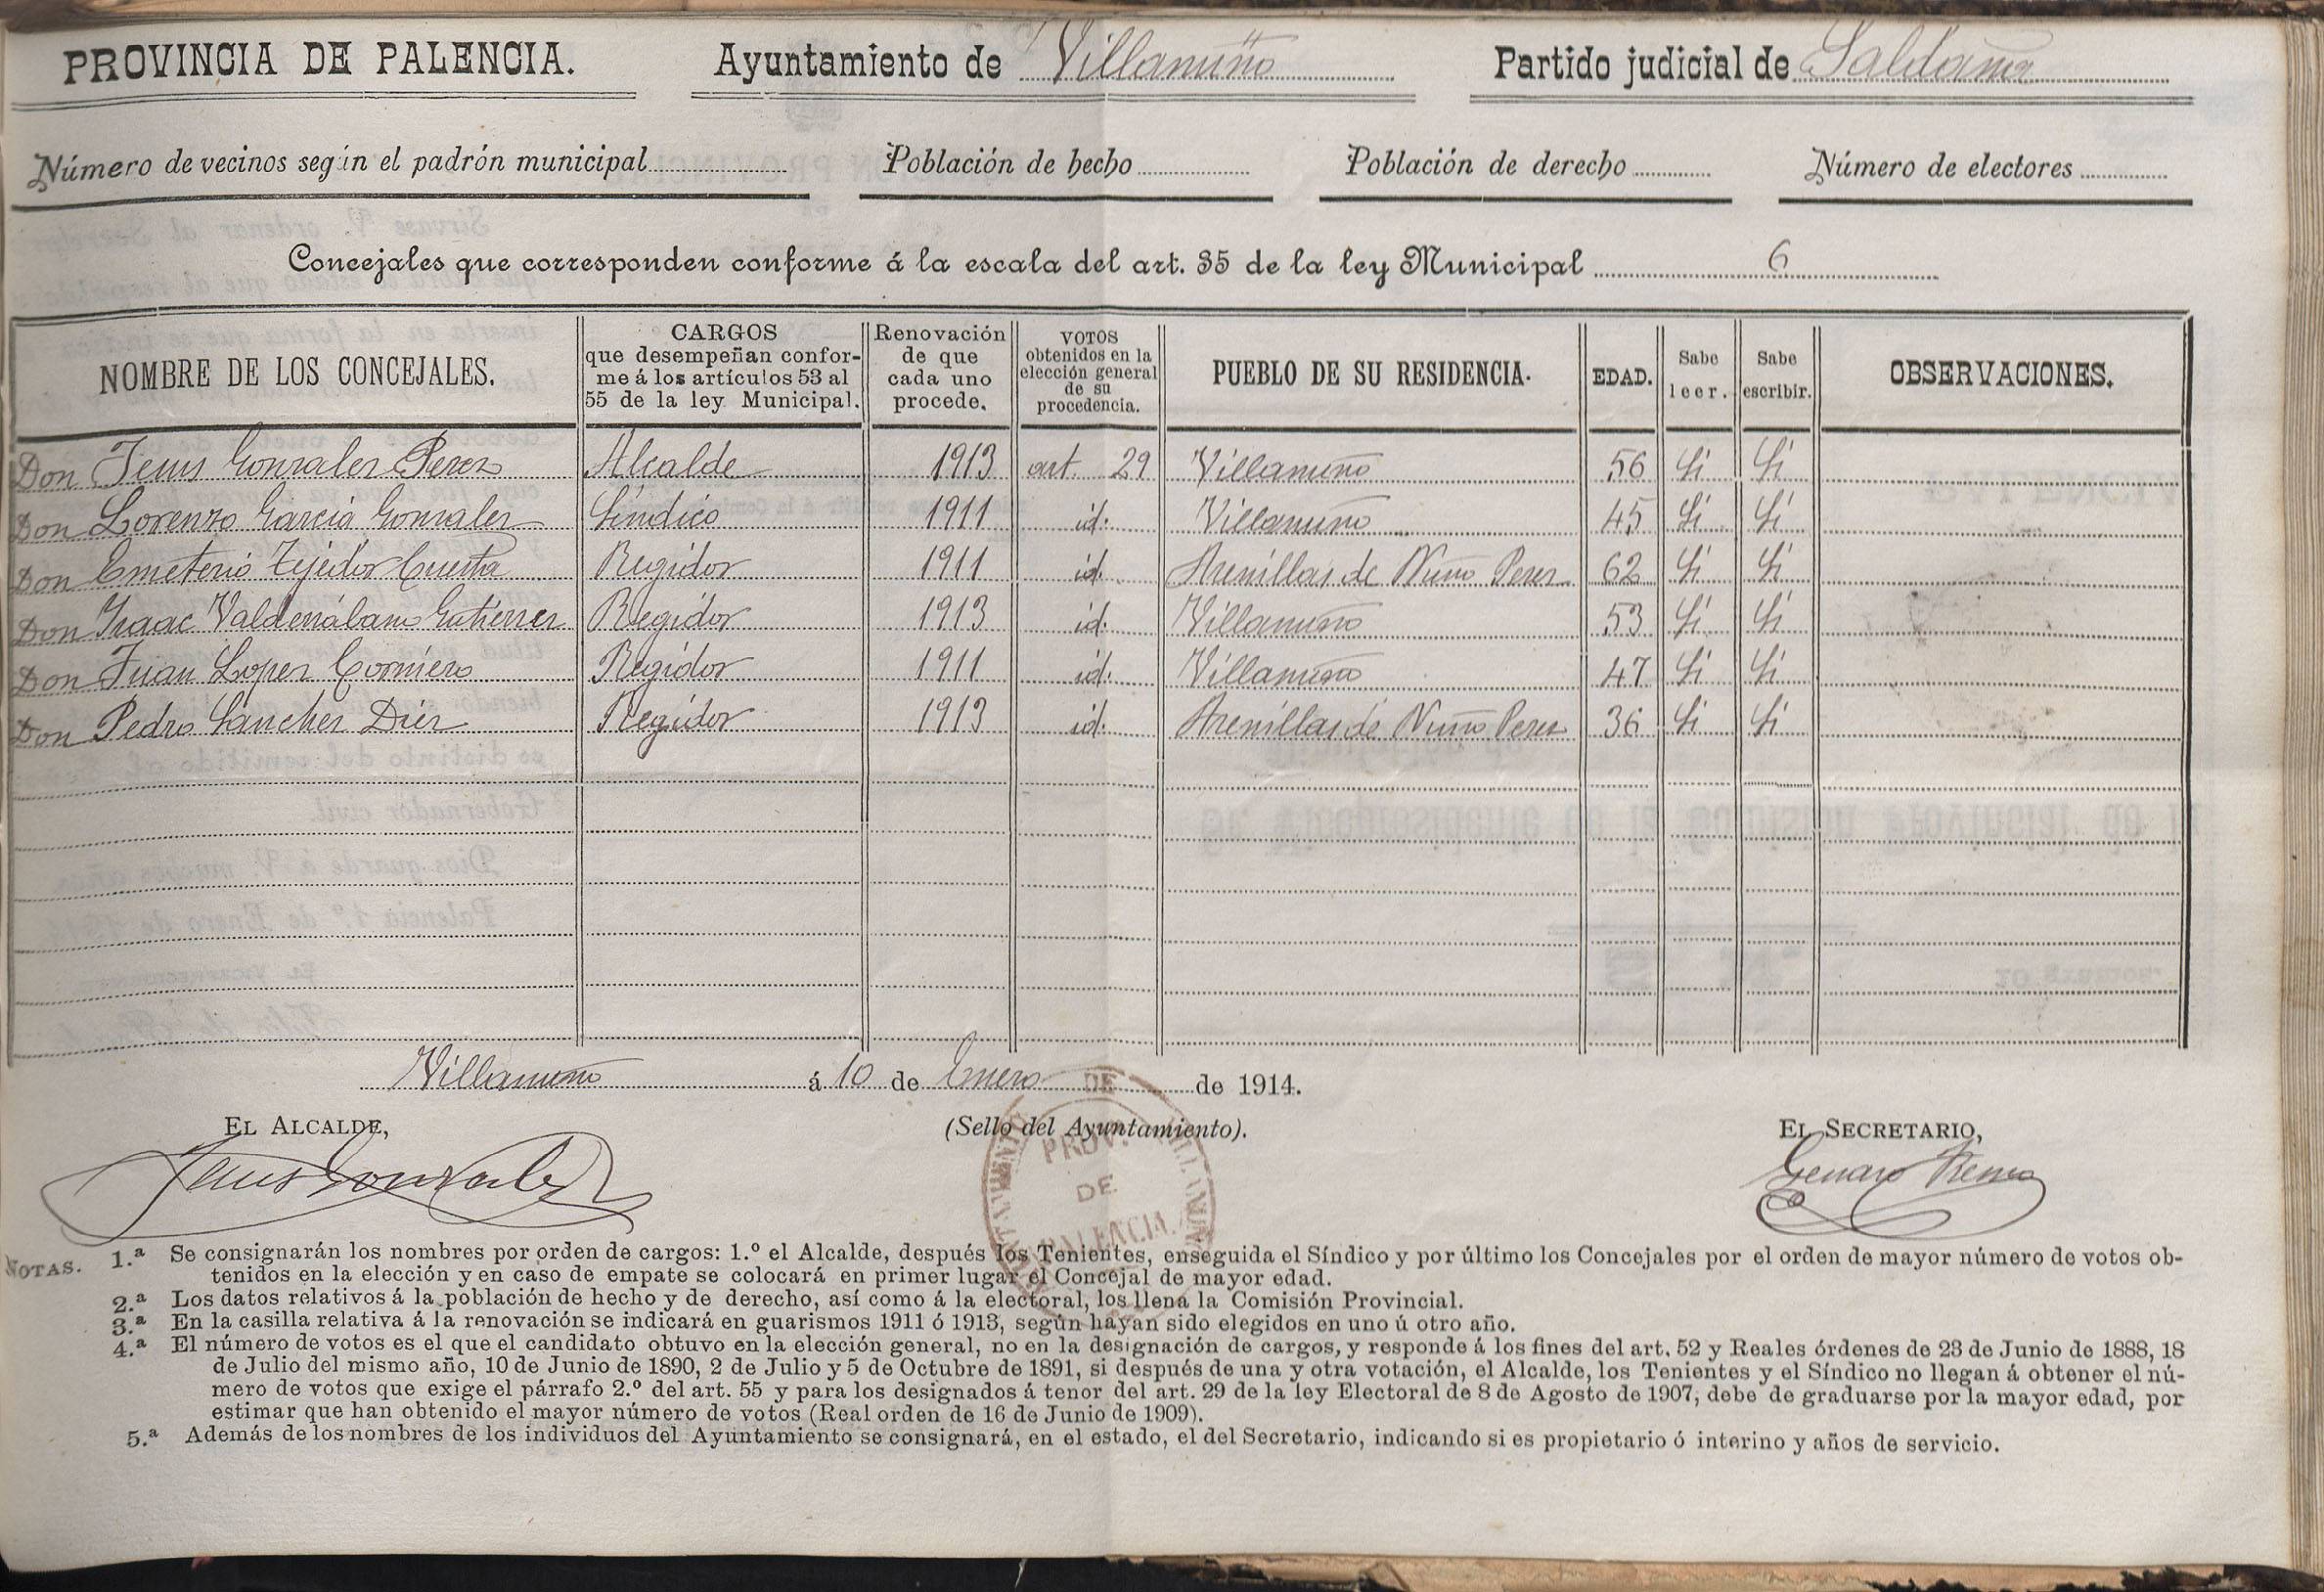 PROVINCIA DE PALENCIA. Ayuntamiento de Villanuño Partido judicial de Saldaña
Número de vecinos según el padrón municipal Población de hecho Población de derecho Número de electores
Concejales que corresponden conforme á la escala del art. 35 de la ley Municipal 6
NOMBRE DE LOS CONCEJALES. CARGOS que desempeñan conforme á los artículos 53 al 55 de la ley Municipal. Renovación de que cada uno procede. VOTOS obtenidos en la elección general de su procedencia. PUEBLO DE SU RESIDENCIA. EDAD. Sabe leer. Sabe escribir. OBSERVACIONES.
Don Jesus Gonzalez Perez Alcalde 1913 art. 29 Villanuño 56 Si Si
Don Lorenzo Garcia Gonzalez Síndico 1911 id. Villanuño 45 Si Si
Don Emeterio Tejedor Cuesta Regidor 1911 id. Arenillas de Nuño Perez 62 Si Si
Don Isaac Valderrábano Gutierrez Regidor 1913 id. Villanuño 53 Si Si
Don Juan Lopez Gorniero Regidor 1911 id. Villanuño 47 Si Si
Don Pedro Sanchez Diez Regidor 1913 id. Arenillas de Nuño Perez 36 Si Si
Villanuño á 10 de Enero de 1914.
EL ALCALDE, (Sello del Ayuntamiento). EL SECRETARIO,
Jesus Gonzalez Genaro
DE
PROV.
DE
PALENCIA.
NOTAS. 1.ª Se consignarán los nombres por orden de cargos: 1.º el Alcalde, después los Tenientes, enseguida el Síndico y por último los Concejales por el orden de mayor número de votos ob-
tenidos en la elección y en caso de empate se colocará en primer lugar el Concejal de mayor edad.
2.ª Los datos relativos á la población de hecho y de derecho, así como á la electoral, los llena la Comisión Provincial.
3.ª En la casilla relativa á la renovación se indicará en guarismos 1911 ó 1913, según hayan sido elegidos en uno ú otro año.
4.ª El número de votos es el que el candidato obtuvo en la elección general, no en la designación de cargos, y responde á los fines del art. 52 y Reales órdenes de 23 de Junio de 1888, 18
de Julio del mismo año, 10 de Junio de 1890, 2 de Julio y 5 de Octubre de 1891, si después de una y otra votación, el Alcalde, los Tenientes y el Síndico no llegan á obtener el nú-
mero de votos que exige el párrafo 2.º del art. 55 y para los designados á tenor del art. 29 de la ley Electoral de 8 de Agosto de 1907, debe de graduarse por la mayor edad, por
estimar que han obtenido el mayor número de votos (Real orden de 16 de Junio de 1909).
5.ª Además de los nombres de los individuos del Ayuntamiento se consignará, en el estado, el del Secretario, indicando si es propietario ó interino y años de servicio.